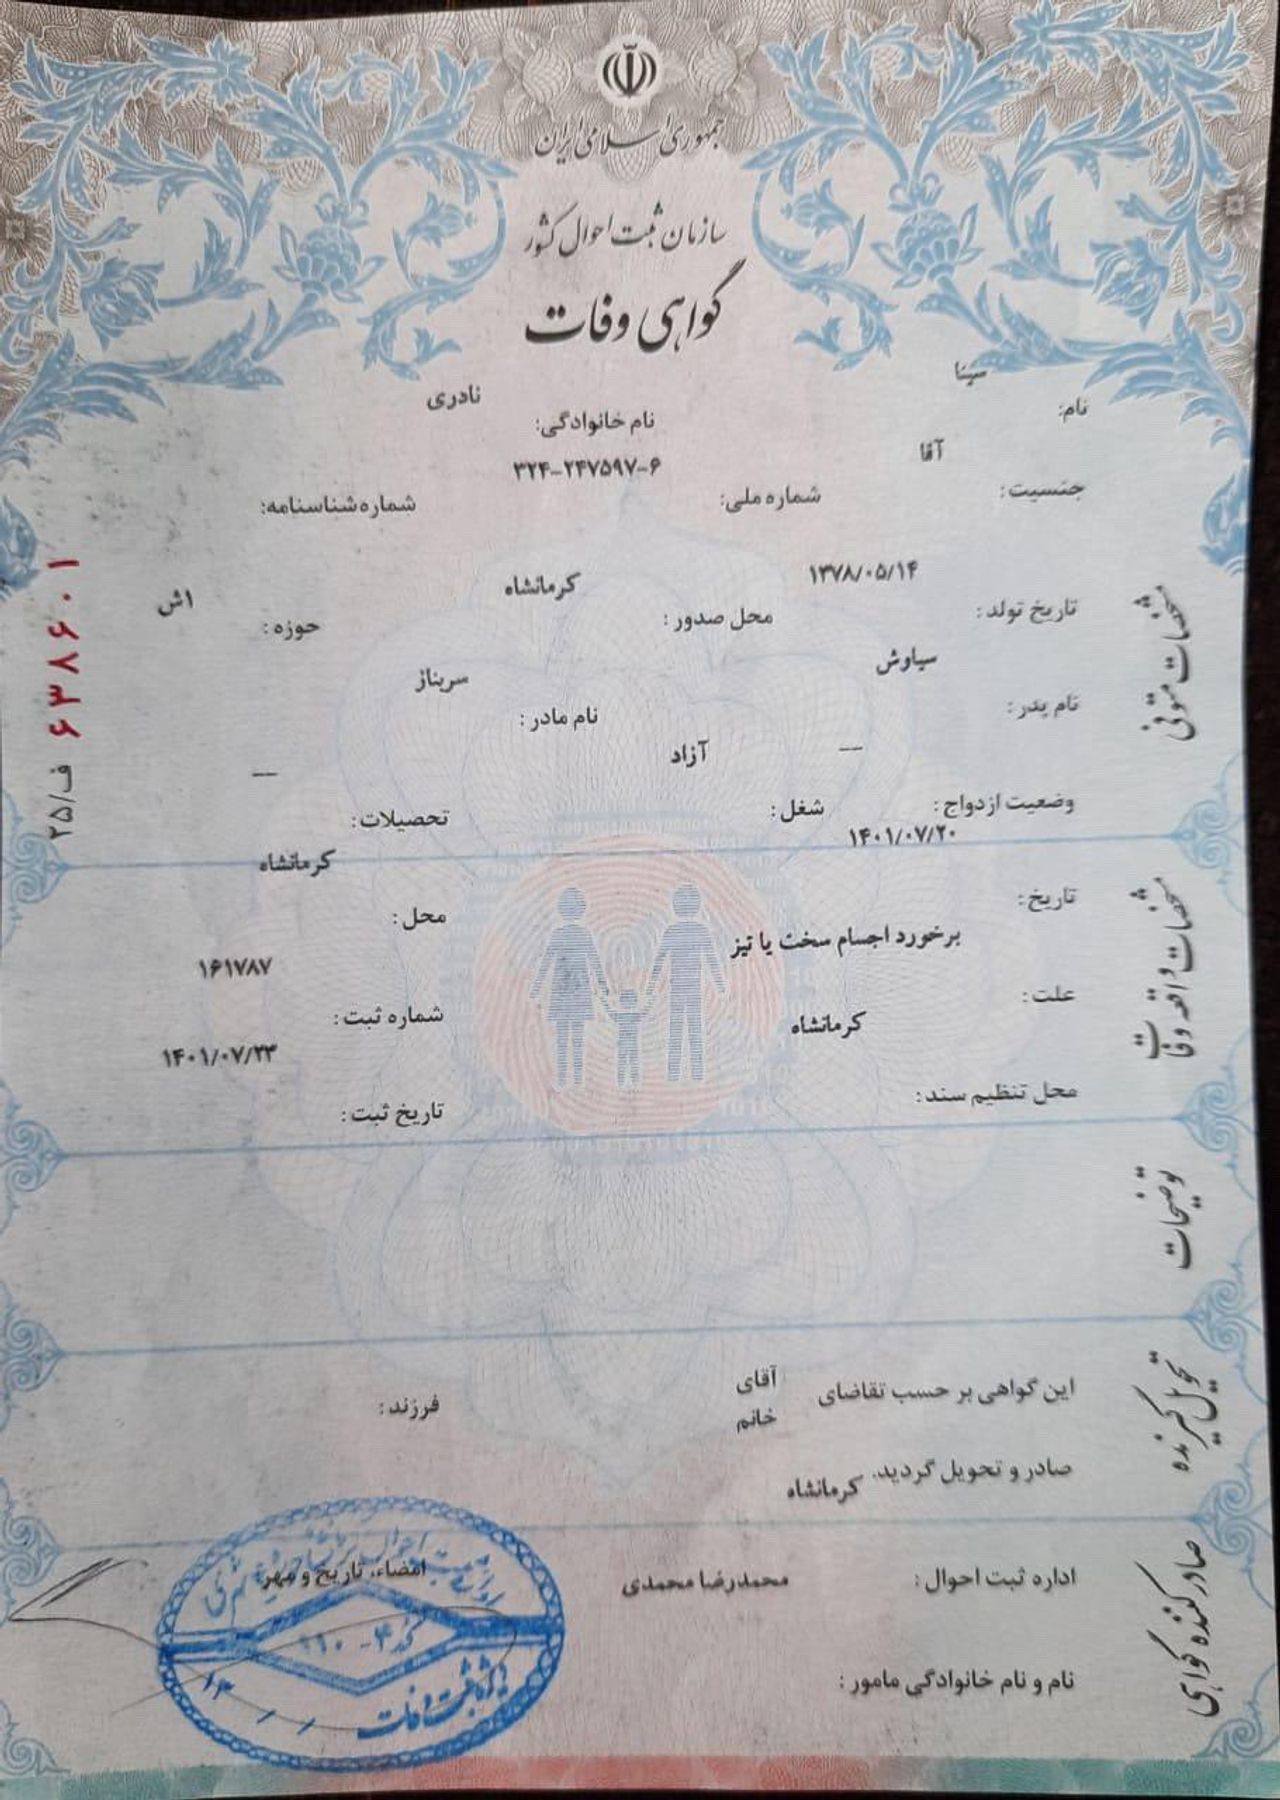 جمهوری اسلامی ایران
سازمان ثبت احوال کشور
گواهی وفات
نام: سینا
نام خانوادگی: نادری
جنسیت: آقا
شماره ملی: ۳۲۴-۲۴۷۵۹۷-۶
شماره شناسنامه:
تاریخ تولد: ۱۳۷۸/۰۵/۱۴
محل صدور: کرمانشاه
حوزه: اش
نام پدر: سیاوش
نام مادر: سریناز
وضعیت ازدواج: __
شغل: آزاد
تحصیلات: __
مشخصات متوفی
تاریخ: ۱۴۰۱/۰۷/۲۰
محل: کرمانشاه
علت: برخورد اجسام سخت یا تیز
شماره ثبت: ۱۶۱۷۸۷
محل تنظیم سند: کرمانشاه
تاریخ ثبت: ۱۴۰۱/۰۷/۲۳
مشخصات واقعه وفات
توضیحات
این گواهی بر حسب تقاضای آقای
خانم
فرزند:
صادر و تحویل گردید.
تحویل گیرنده
اداره ثبت احوال: کرمانشاه
امضاء، تاریخ و مهر:
نام و نام خانوادگی مامور: محمدرضا محمدی
صادر کننده گواهی
ف/۲۵ ۶۳۸۶۰۱
کد ۴-۱۱۰
ویژه ثبت وفات